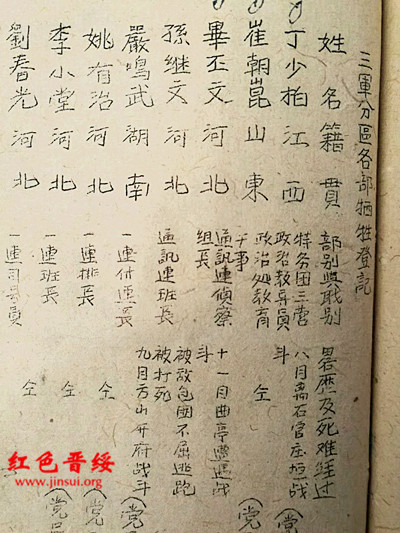 三軍分區各部牺牲登記
姓名 籍貫 部别與职别 畧歷及死难経过
丁少柏 江西 特务团三营
政治教导員 八月离石官庄垣战
斗 (党
崔朝崑 山東 政治处教育
干事 仝 (党
畢丕文 河北 通訊連偵察
組長 十一月曲亭遭遇战
斗
孫继文 河北 通訊連班長 被敌包围不屈逃跑
被打死
嚴鳴武 湖南 一連付連長 九月方山开府战斗
姚有治 河北 一連排長 仝 (党
李小堂 河北 一連班長 仝 (党
劉春光 河北 一連司号員 仝
红色晋绥
www.jinsui.org